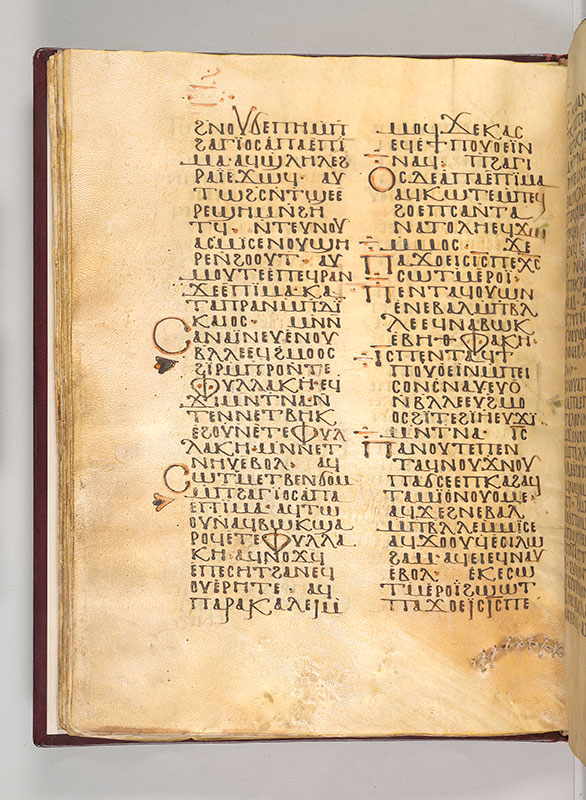 ϩⲛⲟⲩϭⲉⲡⲏⲙⲡ
ϩⲁⲅⲓⲟⲥⲁⲡⲁⲉⲡⲓ
ⲙⲁ· ⲁϥϣⲗⲏⲗⲉϩ
ⲣⲁⲓⲉϫⲱϥ· ⲁⲩ
ⲧⲱϩⲥⲛⲧϣⲉⲉ
ⲣⲉϣⲏⲙⲛϩⲏ
ⲧϥ· ⲛⲧⲉⲩⲛⲟⲩ
ⲁⲥⲙⲓⲥⲉⲛⲟⲩϣⲏ
ⲣⲉⲛϩⲟⲟⲩⲧ· ⲁⲩ
ⲙⲟⲩⲧⲉⲉⲡⲉϥⲣⲁⲛ
ϫⲉⲉⲡⲓⲙⲁ· ⲕⲁ
ⲧⲁⲡⲣⲁⲛⲙⲡⲇⲓ
ⲕⲁⲓⲟⲥ· ⲙⲛⲛ
ⲥⲁⲛⲁⲓⲛⲉⲩⲉⲛⲟⲩ
ⲃⲗⲗⲉⲉϥϩⲙⲟⲟⲥ
ϩⲓⲣⲙⲡⲣⲟⲛⲧⲉ
ⲫⲩⲗⲗⲁⲕⲏⲉϥ
ϫⲓⲙⲛⲧⲛⲁⲛ
ⲧⲉⲛⲛⲉⲧⲃⲏⲕ
ⲉϩⲟⲩⲛⲉⲧⲉⲫⲩⲗ
ⲗⲁⲕⲏ· ⲙⲛⲛⲉⲧ
ⲛⲏⲩⲉⲃⲟⲗ· ⲁϥ
ⲥⲱⲧⲙⲉⲧⲃⲉⲛϭⲟⲙ
ⲙⲡϩⲁⲅⲓⲟⲥⲁⲡⲁ
ⲉⲡⲓⲙⲁ· ⲁϥⲧⲱ
ⲟⲩⲛⲁϥⲃⲱⲕϣⲁ
ⲣⲟϥⲉⲧⲉⲫⲩⲗⲗⲁ
ⲕⲏ· ⲁϥⲛⲟϫϥ
ⲉⲡⲉⲥⲏⲧϩⲁⲛⲉϥ
ⲟⲩⲉⲣⲏⲧⲉ· ⲁϥ
ⲡⲁⲣⲁⲕⲁⲗⲉⲓⲙ
ⲙⲟϥϫⲉⲕⲁⲥ
ⲉϥⲉϯⲡⲟⲩⲟⲉⲓⲛ
ⲛⲁϥ· ⲡϩⲁⲅⲓ
ⲟⲥⲇⲉⲁⲡⲁⲉⲡⲓⲙⲁ
ⲁϥⲕⲧⲉⲙⲡⲉϥ
ϩⲟⲉⲡⲥⲁⲛⲧⲁ
ⲛⲁⲧⲟⲗⲏⲉϥϫⲱ
ⲙⲙⲟⲥ· ϫⲉ
ⲡⲁϫⲟⲉⲓⲥⲓⲥⲡⲉⲭⲥ
ⲥⲱⲧⲙⲉⲣⲟⲓ·
ⲡⲉⲛⲧⲁϥⲟⲩⲱⲛ
ⲉⲛⲉⲃⲁⲗⲙⲡⲃⲗ
ⲗⲉⲉϥⲛⲁⲃⲱⲕ
ⲉⲃⲏⲑⲫⲁⲕⲏ·
ⲓⲥⲡⲉⲛⲧⲁϥϯ
ⲡⲟⲩⲟⲉⲓⲛⲙⲡⲉⲓ
ⲥⲟⲛⲥⲛⲁⲩⲉⲩⲟ
ⲛⲃⲗⲗⲉⲉⲩϩⲙⲟ
ⲟⲥϩⲓⲧⲉϩⲓⲏⲉⲩϫⲓ
ⲙⲛⲧⲛⲁ· ⲓⲥ
ⲡⲁⲛⲟⲩⲧⲉⲡⲉⲛ
ⲧⲁϥⲛⲟⲩϫⲛⲟⲩ
ⲡⲁϭⲥⲉⲉⲡⲕⲁϩⲁϥ
ⲧⲁⲙⲓⲟⲛⲟⲩⲟⲙⲉ·
ⲁϥϫⲉϩⲛⲉⲃⲁⲗ
ⲙⲡⲃⲗⲗⲉⲙⲙⲓⲥⲉ
ⲁϥϫⲟⲟⲩϥⲉⲥⲓⲗⲱ
ϩⲁⲙ· ⲁϥⲉⲓⲉϥⲛⲁⲩ
ⲉⲃⲟⲗ· ⲉⲕⲉⲥⲱ
ⲧⲙⲉⲣⲟⲓϩⲱⲱⲧ
ⲡⲁϫⲟⲉⲓⲥⲓⲥⲡⲉ